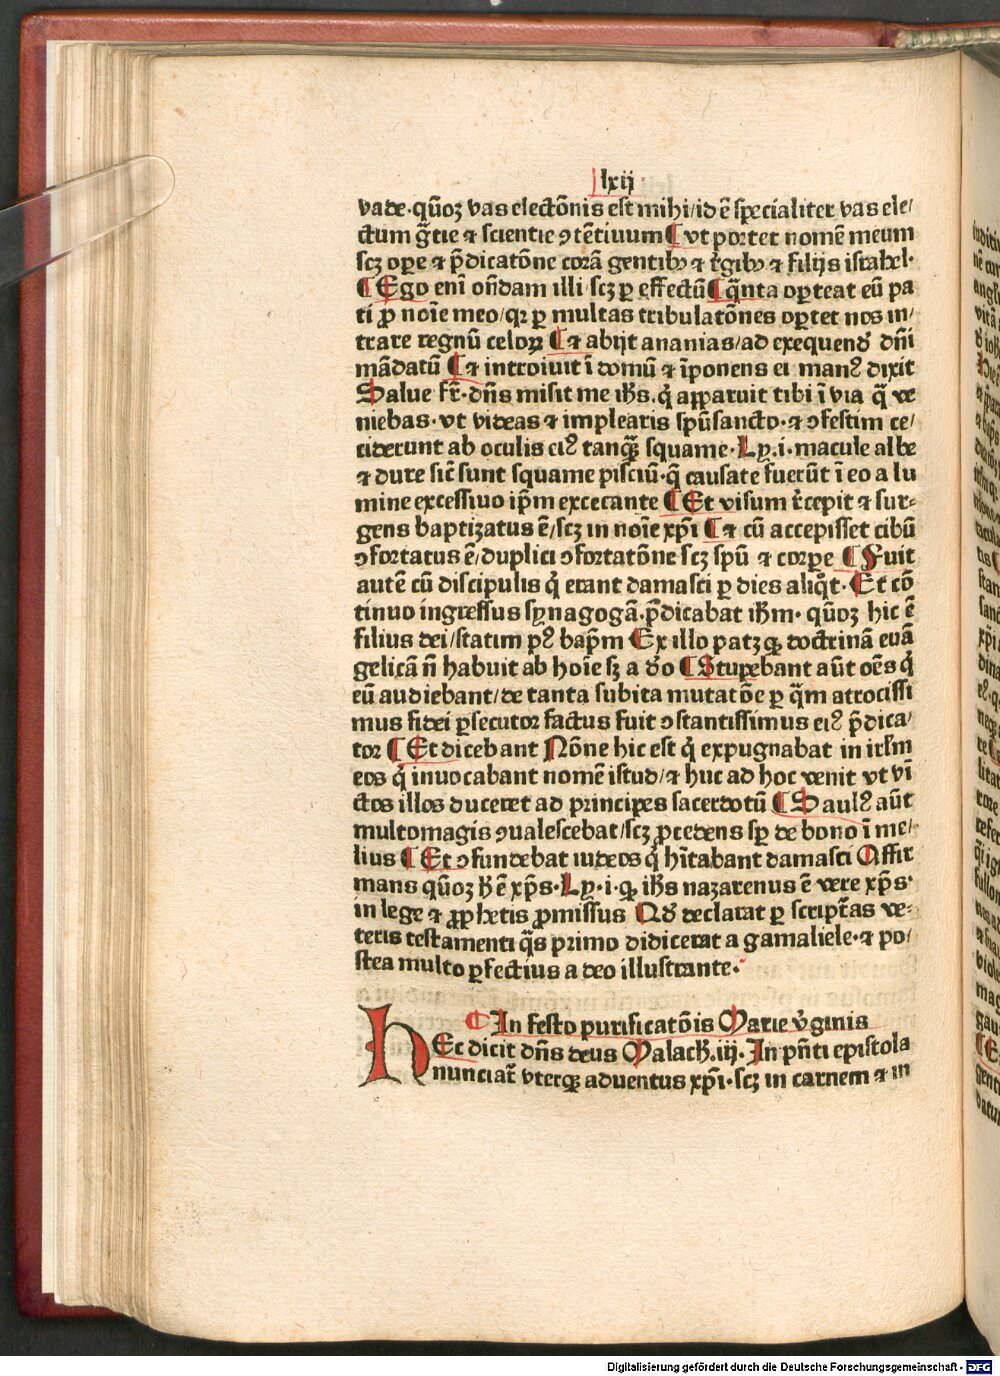 lxij
vade·qm̄oʒ vas electōnis est mihi/id ē specialiter vas ele/
ctum gr̄tie ⁊ scientie ↄtētiuum ¶ vt portet nomē meum
scʒ oꝑe ⁊ p̄dicatōne corā gentibꝫ ⁊ r̄gibꝫ ⁊ filijs israhel·
¶ Ego eni on̄dam illi/scʒ ꝑ effectū ¶ q̄nta oꝑteat eū pa
ti ꝓ noīe meo/qꝛ ꝑ multas tribulatōnes oꝑtet nos in/
trare regnū celoꝝ ¶ ⁊ abijt ananias/ad exequend̄ dn̄i
mādatū ¶ ⁊ introiuit ī domū ⁊ īponens ei manꝰ dixit
Salue fr̄·dn̄s misit me ih̄s.q̇ apparuit tibi ī via q̄ ve
niebas·vt videas ⁊ implearis spū sancto·⁊ ↄfestim ce/
ciderunt ab oculis eiꝰ tanqꝫ̄ squame·Ly.i·macule albe
⁊ dure sic̄ sunt squame pisciū·q̄ causate fuerūt ī eo a lu
mine excessiuo ip̄m excecante ¶ Et visum r̄cepit ⁊ sur⸗
gens baptizatus ē/scʒ in noīe xp̄i ¶ ⁊ cū accepisset cibū
ↄfortatus ē/duplici ↄfortatōne scʒ spū ⁊ corꝑe ¶ Fuit
autē cū discipulis q̇ erant damasci ꝑ dies aliq̇t·Et cō
tinuo ingressus synagogā·p̄dicabat ih̄m·qūoʒ hic ē
filius dei/statim pꝰ bapm̄ Ex illo patʒ qꝫ doctrinā euā
gelicā n̄ habuit ab hoīe sʒ a d̄o ¶ Stupebant aūt oēs q̇
eū audiebant/de tanta subita mutatōe ꝑ q̄m atrocissi
mus fidei ꝑsecutor factus fuit ↄstantissimus eiꝰ p̄dica/
tor ¶ Et dicebant Nōne hic est q̇ expugnabat in irl̄m
eos q̇ inuocabant nomē istud/⁊ huc ad hoc venit vt vī
ctos illos duceret ad principes sacerdotū ¶ Saulꝰ aūt
multomagis ↄualescebat/scʒ ꝓcedens sꝑ de bono ī me/
lius ¶ Et ↄfundebat iudeos q̇ hītabant damasci Affir
mans qūoʒ h̄ ē xp̄s·Ly·i·qꝫ ih̄s nazarenus ē vere xp̄s·
in lege ⁊ ꝓphetis ꝓmissus Qd̄ declarat ꝑ scripturas ve⸗
teris testamenti q̄s primo didicerat a gamaliele·⁊ po/
stea multo ꝑfectius a deo illustrante·
¶ In festo purificatōis Marie v̇ginis
HEc dicit dn̄s deus Malach̄.iij. In pn̄ti epistola
nunciat̄ vterqꝫ aduentus xp̄i·scʒ in carnem ⁊ in
Digitalisierung gefördert durch die Deutsche Forschungsgemeinschaft - DFG